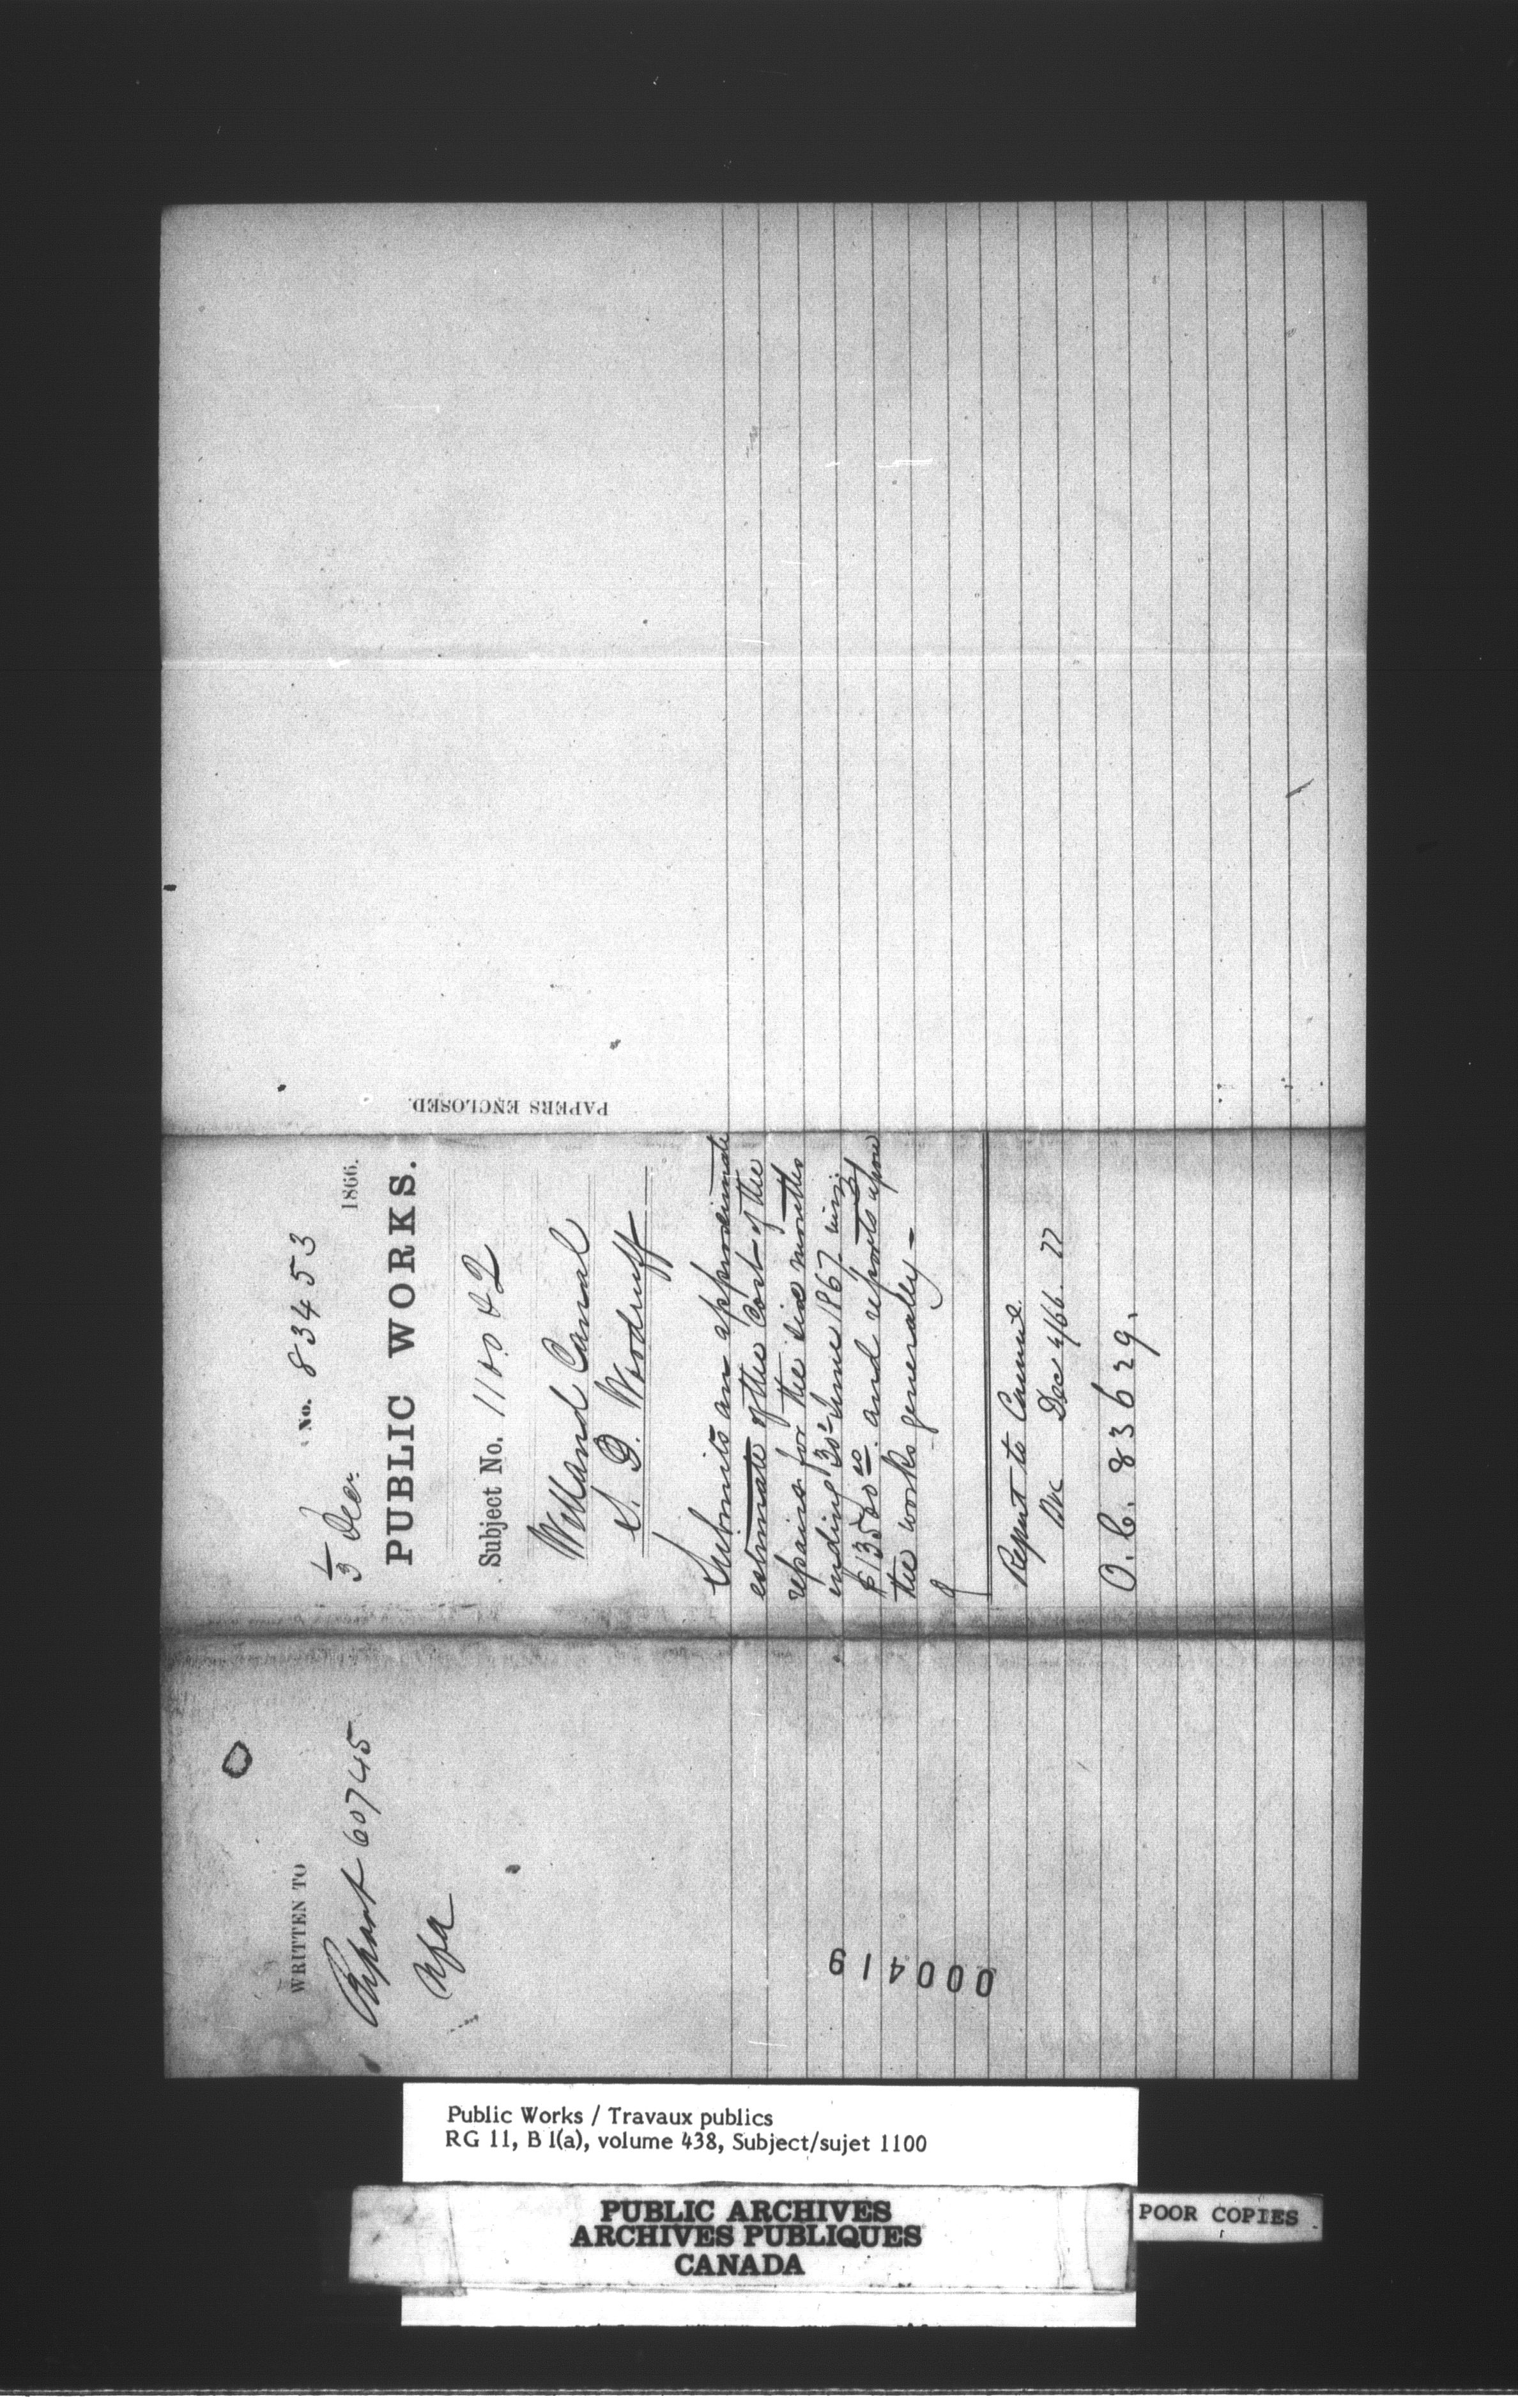 WRITTEN TO
Report 60745
No. 83453
1/3 Decr. 1866.
PUBLIC WORKS.
Subject No. 1100
Welland Canal
S. D. Woodruff
Submits an approximate
estimate of the Cost of the
repairs for the six months
ending 30 June 1867 viz:
$13500 00 and reports upon
the works generally -
Report to Council
Dec 4/66.
O.C. 83629.
PAPERS ENCLOSED.
000419
Public Works / Travaux publics
RG 11, B 1(a), volume 438, Subject/sujet 1100
PUBLIC ARCHIVES
ARCHIVES PUBLIQUES
CANADA
POOR COPIES